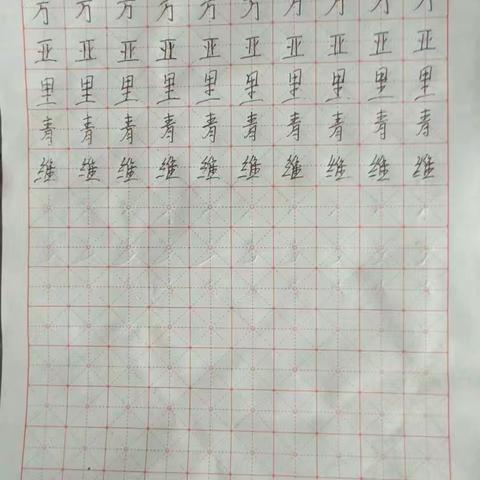 亚亚亚亚亚亚亚亚亚亚
里里里里里里里里里里
青青青青青青青青青青
维维维维维维维维维维